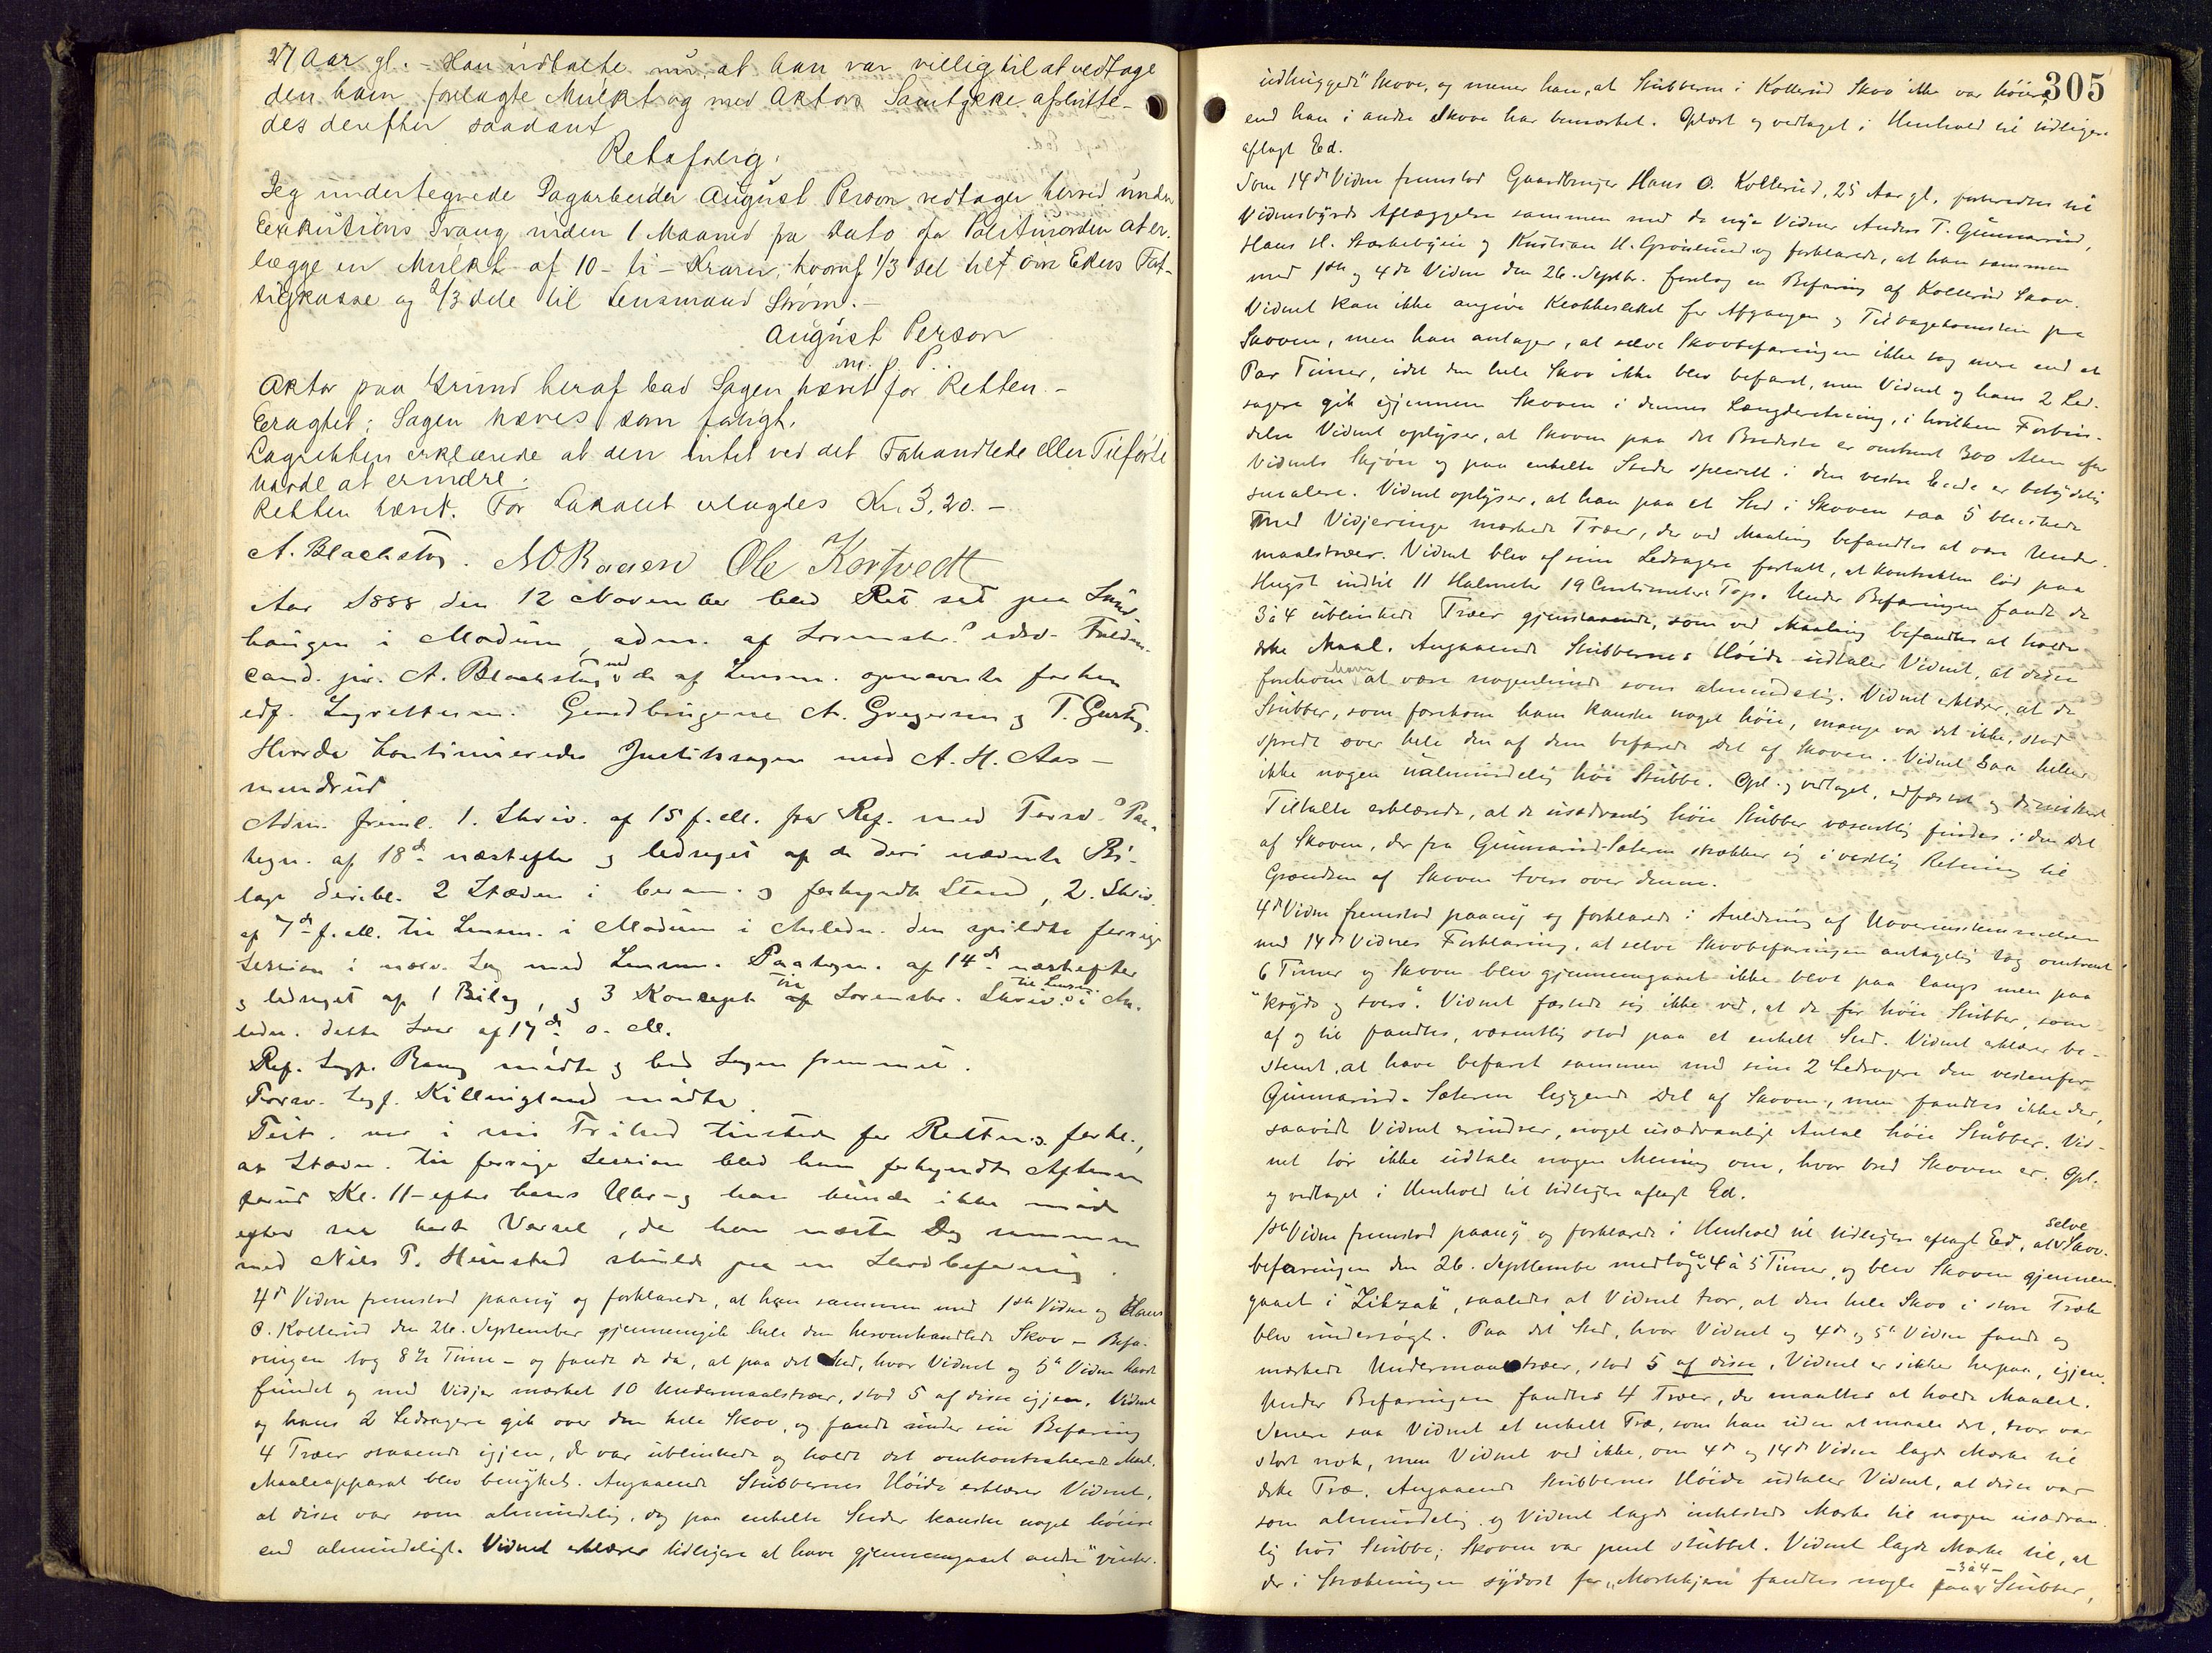 27 Aar gl. – Han udtalte nu at han var villig til at vedtage
den ham forelagte Mulkt og med Aktors Samtykke afslutte-
des derefter saadant
Retsforlig:
Jeg undertegnede Sagarbeider August Person vedtager herved under
Exekutions Tvang inden 1 Maaned fra Dato for Politiuorden at er-
lægge en Mulkt af 10 – ti – Kroner, hvoraf 1/3 del til Øvre Ekers Fat-
tigkasse og 2/3 dele til Lensmand Strøm. –
August Person
m. p. P.
Aktor paa Grund heraf bad Sagen hævet for Retten. –
Eragtet: Sagen hæves som forligt.
Lagretten erklærede at den intet ved det Forhandlede eller Tilførte
havde at erindre.
Retten hævet. For Lokalet erlagdes Kr. 3,20. –
A. Blackstad. Ole Kortvedt
Aar 1888 den 12 November blev Ret sat paa Sund-
haugen i Modum, adm. af Sorenskr.s edsv. Fuldm.
cand. jur. A. Blackstad med de af Lensm. opnævnte forhen
edf. Lagrettesm. Gaardbrugerne A. Gregersen og T.
Hvorda kontinueredes Justitssagen mod A. H. Aas-
mundrud
Adm. freml. 1. Skriv. af 15 f. M. fra Ref. med Forsv.s Paa-
tegn. af 18de næstefter og ledsaget af de deri nævnte Bi-
lage deribl. 2 Stævn. i beram. og forkyndt Stand, 2. Skriv.
af 7de f. M. til Lensm. i Modum i Anledn. den spildte forrige
Session i nærv. Sag med Lensm. Paategn. af 14de næstefter
og ledsaget af 1 Bilag, og 3 Koncept til Sorenskr. Skriv. til Lensm. i An-
ledn. dette Svar af 17de s. M.
Ref. Sagf. Bang mødte og bad Sagen fremmet.
Forsv. Sagf. Killingland mødte.
Tilt. var i sin Frihed tilstede for Retten og forkl.,
at Stævn. til forrige Session blev ham forkyndt Aftenen
forud Kl. 11 – efter hans Uhr – og han kunde ikke møde
efter saa kort Varsel, da han næste Dag sammen
med Nils P. Hunstad skulde paa en Skovbefaring.
4de Vidne fremstod paany og forklarede, at han sammen med 1ste Vidne og Hans
O. Kollerud den 26. September gjennemgik hele den heromhandlede Skov – Befa-
ringen tog 8½ Time – og fandt de da, at paa det Sted, hvor Vidnet og 5te Vidne havde
fundet og med Vidjer mærket 10 Undermaalstræer, stod 5 af disse igjen. Vidnet
og hans 2 Ledsagere gik over den hele Skov, og fandt under sin Befaring
4 Træer staaende igjen, der var ublinkede og holdt det omkontraherede Maal.
Maaleapparat blev benyttet. Angaaende Stubbernes Høide erklærer Vidnet,
at disse var som almindelig, dog paa enkelte Steder kanske noget høiere
end almindeligt. Vidnet erklærer tidligere at have gjennemgaaet andre "vinter-
305
udhuggede" Skove, og mener han, at Stubberne i Kollerud Skov ikke var høiere,
end han i andre Skove har bemærket. Oplæst og vedtaget i Henhold til tidligere
aflagt Ed.
Som 14de Vidne fremstod Gaardbruger Hans O. Kollerud, 25 Aar gl., forberedtes til
Vidnesbyrds Aflæggelse sammen med de nye Vidner Anders T. Gunnerud,
Hans H. og Kristian H. Grønlund og forklarede, at han sammen
med 1ste og 4de Vidne den 26. Septbr. foretog en Befaring af Kollerud Skov.
Vidnet kan ikke angive Klokkeslettet for Afgangen og Tilbagekomsten fra
Skoven, men han antager, at selve Skovbefaringen ikke tog mere end et
Par Timer, idet den hele Skov ikke blev befaret, men Vidnet og hans 2 Led-
sagere gik igjennem Skoven i dennes Længderetning, i hvilken Forbin-
delse Vidnet oplyser, at Skoven paa det Bredeste er omtrent 300 Alen efter
Vidnets Skjøn og paa enkelte Steder specielt i den vestre Ende er betydelig
smalere. Vidnet oplyser, at han paa et Sted i Skoven saa 5 blinkede
med Vidjeringe mærkede Træer, der ved Maaling befandtes at være Under-
maalstræer. Vidnet blev af sine Ledsagere fortalt, at Kontrakten lød paa
Hugst indtil 11 Halvmeter 19 Centimeters Top. Under Befaringen fandt de
3 à 4 ublinkede Træer gjenstaaende, som ved Maaling befandtes at holde
dette Maal. Angaaende Stubbernes Høide udtaler Vidnet, at disse
forekom ham at være nogenlunde som almindelig. Vidnet erklærer, at de
Stubber, som forekom ham kanske noget høie, mange var det ikke, stod
spredt over hele den af dem befarede Del af Skoven. Vidnet saa heller
ikke nogen ualmindelig høi Stubbe. Opl. og vedtaget, edfæstet og dimitteret.
Tiltalte erklærede, at de usædvanlig høie Stubber væsentlig findes i den Del
af Skoven, der fra Gunnerud-Sæteren strækker sig i vestlig Retning til
Grændsen af Skoven tvers over denne.
4de Vidne fremstod paany og forklarede i Anledning af Uoverensstemmelsen
med 14de Vidnes Forklaring, at selve Skovbefaringen antagelig tog omtrent
6 Timer og Skoven blev gjennemgaaet ikke blot paa langs men paa
"kryds og tvers". Vidnet fæstede sig ikke ved, at de før høie Stubber, som
af og til fandtes, væsentlig stod paa et enkelt Sted. Vidnet erklærer be-
stemt, at have befaret sammen med sine 2 Ledsagere den vestenfor
Gunnerud-Sæteren liggende Del af Skoven, men fandtes ikke der,
saavidt Vidnet erindrer, noget usædvanligt Antal høie Stubber. Vid-
net tør ikke udtale nogen Mening om, hvor bred Skoven er. Opl.
og vedtaget i Henhold til tidligere aflagt Ed.
1ste Vidne fremstod paany og forklarede i Henhold til tidligere aflagt Ed, at selve Skov-
befaringen den 26. September medtog ca 4 à 5 Timer, og blev Skoven gjennem-
gaaet i "Ziksak", saaledes at Vidnet tror, at den hele Skov i store Træk
blev undersøgt. Paa det Sted, hvor Vidnet og 4de og 5te Vidne fandt og
mærkede Undermaalstræer, stod 5 af disse, Vidnet er sikker herpaa, igjen.
Under Befaringen fandtes 4 Træer, der maaltes at holde Maalet.
Senere saa Vidnet et enkelt Træ, som han uden at maale det, tror var
stort nok, men Vidnet ved ikke, om 4de og 14de Vidne lagde Mærke til
dette Træ. Angaaende Stubbernes Høide udtaler Vidnet, at disse var
som almindelig og Vidnet lagde intetsteds Mærke til nogen usædvan-
lig høi Stubbe; Skoven var pent stubbet. Vidnet lagde Mærke til, at
der i Strækningen sydost for "Mortekjern" fandtes nogle – 3 à 4 – Stubber,